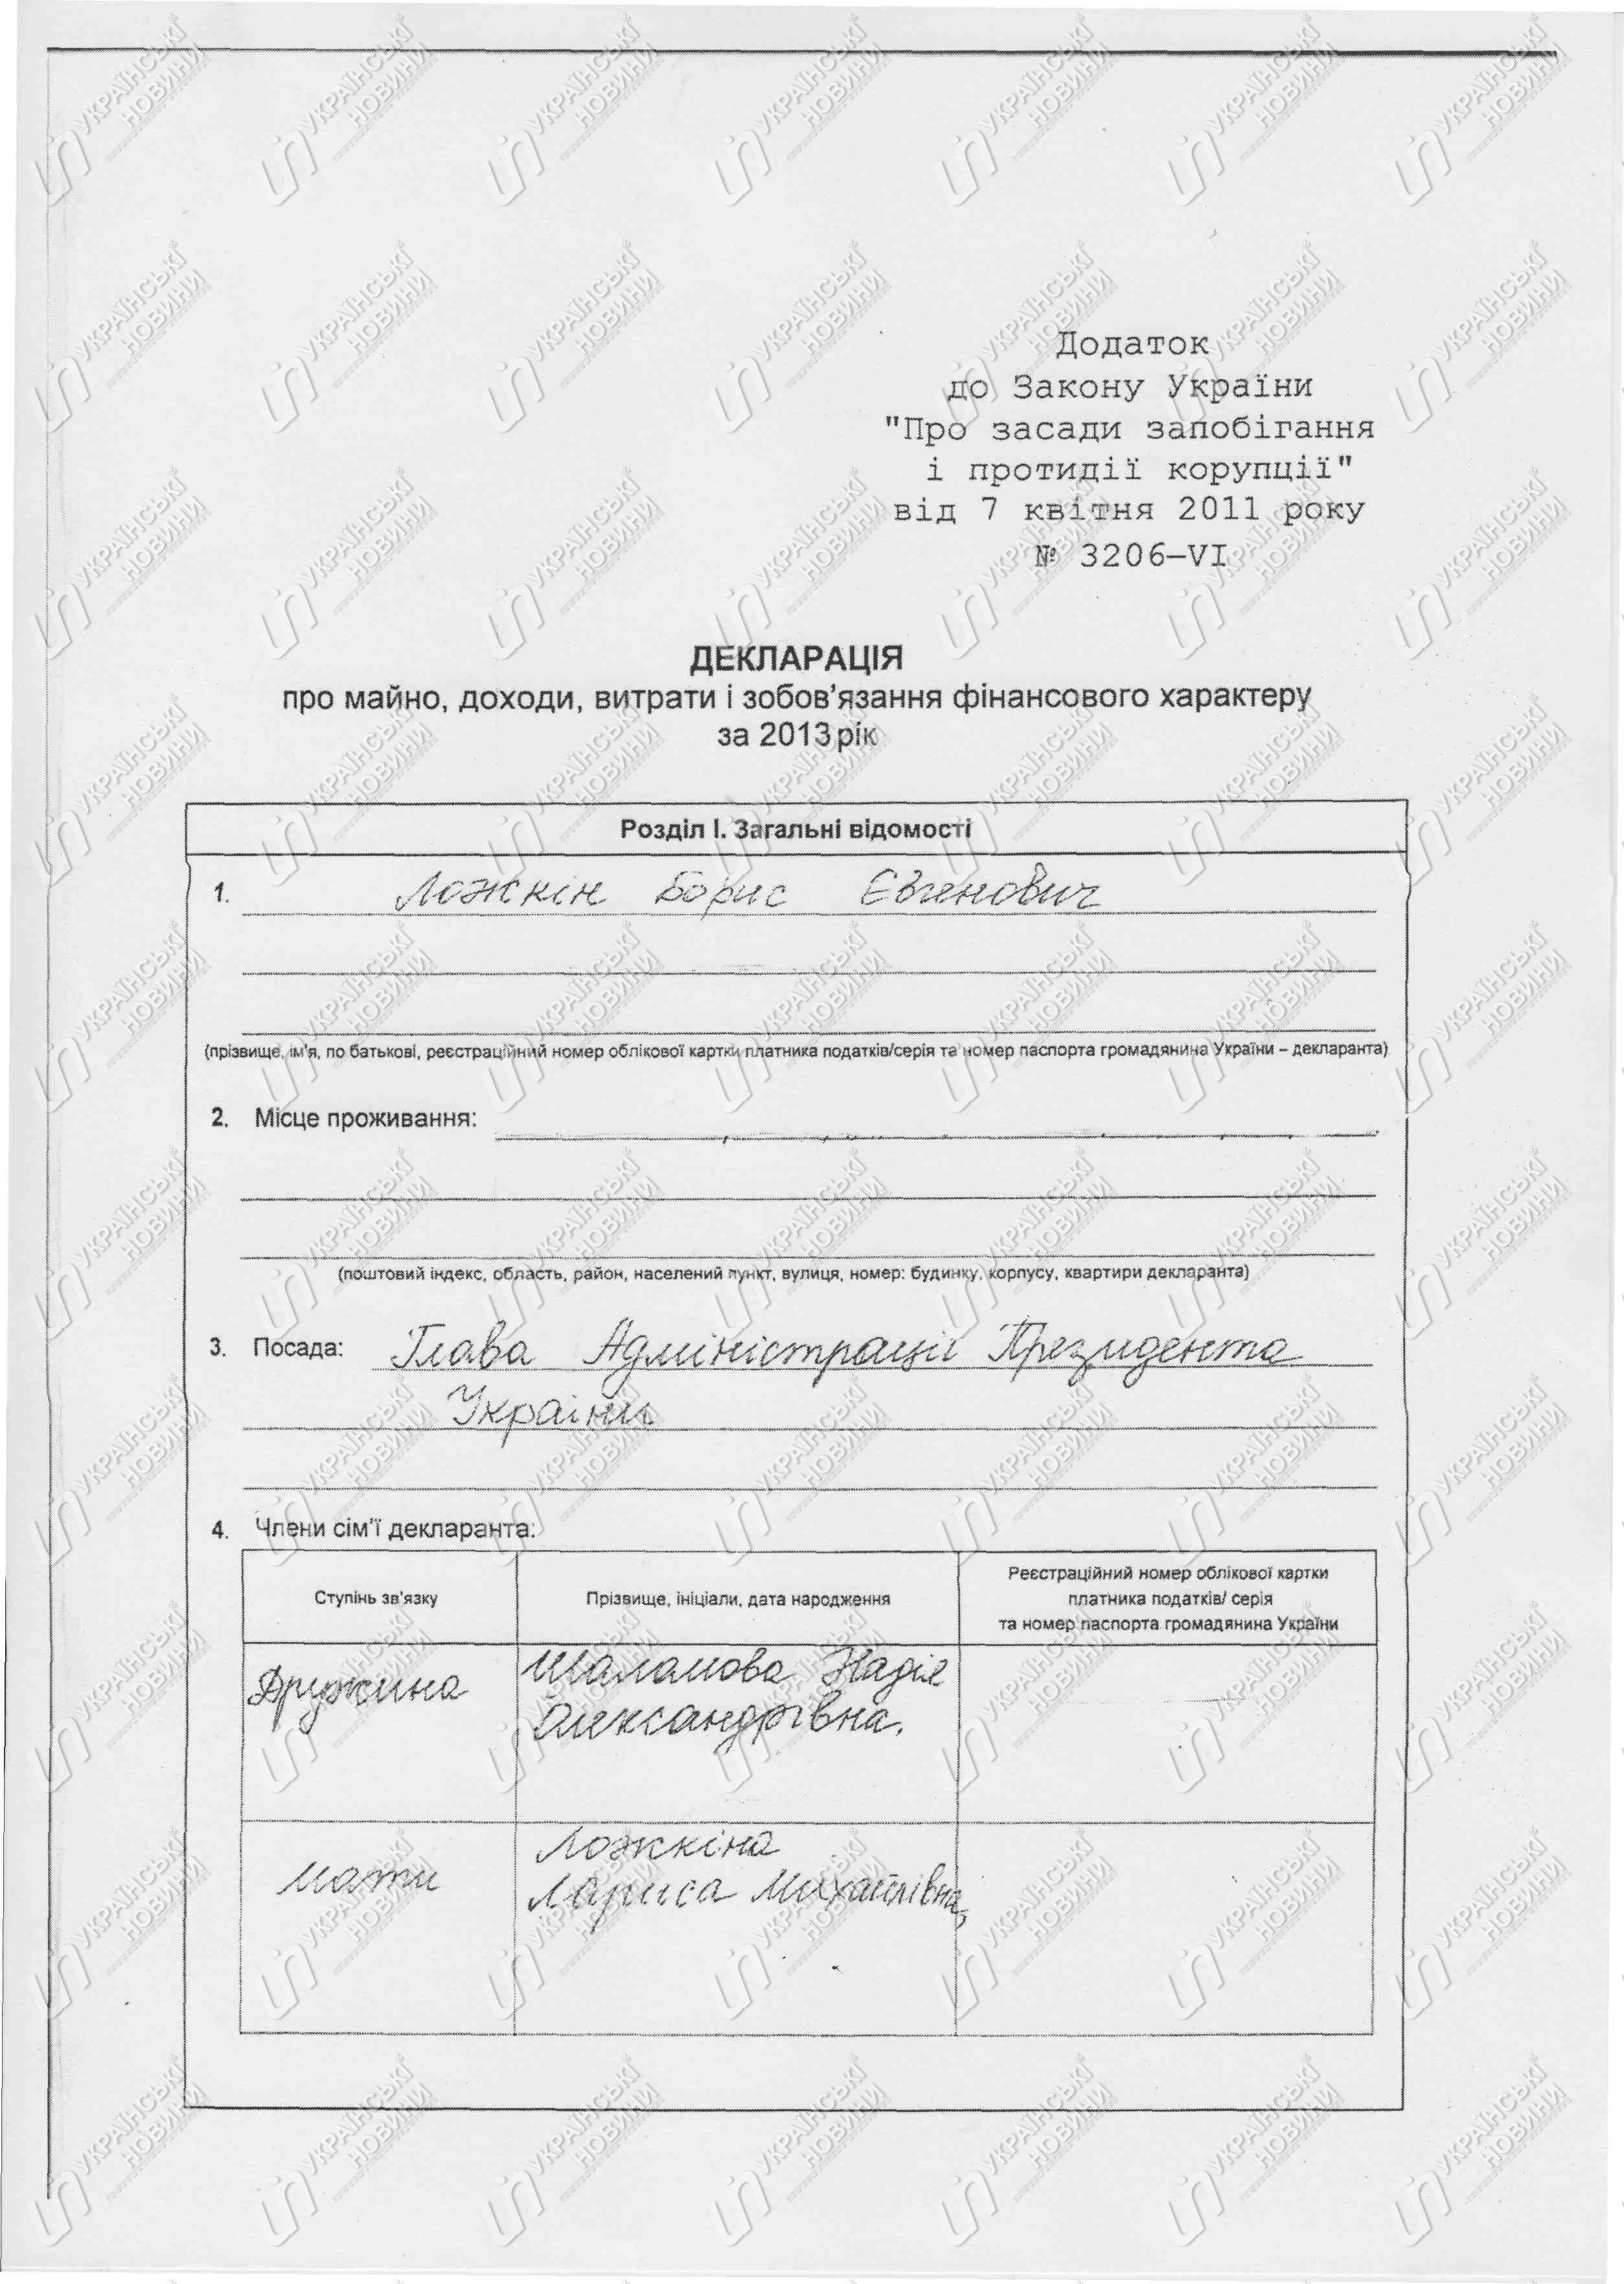 Додаток
до Закону України
"Про засади запобігання
і протидії корупції"
від 7 квітня 2011 року
№ 3206–VI
ДЕКЛАРАЦІЯ
про майно, доходи, витрати і зобов'язання фінансового характеру
за 2013 рік
Розділ І. Загальні відомості
1. Ложкін Борис Євгенович
(прізвище, ім'я, по батькові, реєстраційний номер облікової картки платника податків/серія та номер паспорта громадянина України – декларанта)
2. Місце проживання:
(поштовий індекс, область, район, населений пункт, вулиця, номер: будинку, корпусу, квартири декларанта)
3. Посада: Глава Адміністрації Президента
України
4. Члени сім'ї декларанта:
Ступінь зв'язку
Прізвище, ініціали, дата народження
Реєстраційний номер облікової картки
платника податків/ серія
та номер паспорта громадянина України
Дружина
Шаламова Надія
Олександрівна.
мати
Ложкіна
Лариса Михайлівна,
УКРАЇНСЬКІ
НОВИНИ